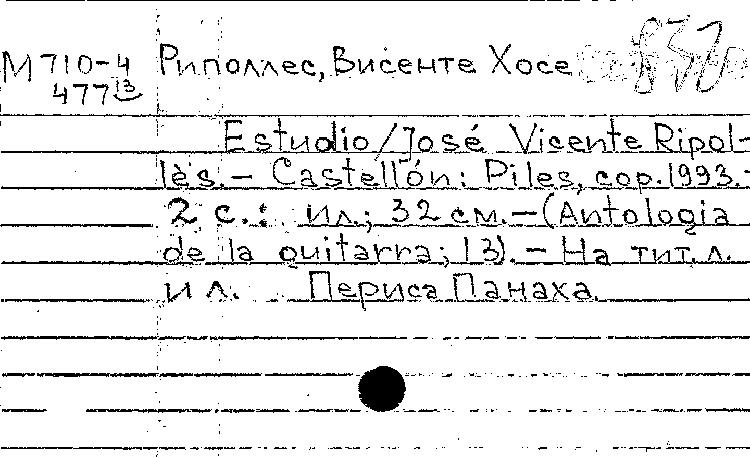 М 710-4 Риполлес, Висенте Хосе
477 13
Estudio / José Vicente Ripol-
lès. – Castellón: Piles, cop. 1993. –
2 с.: ил.; 32 см. – (Antologia
de la guitarra; 13). – На тит. л.
ил. Периса Панаха.